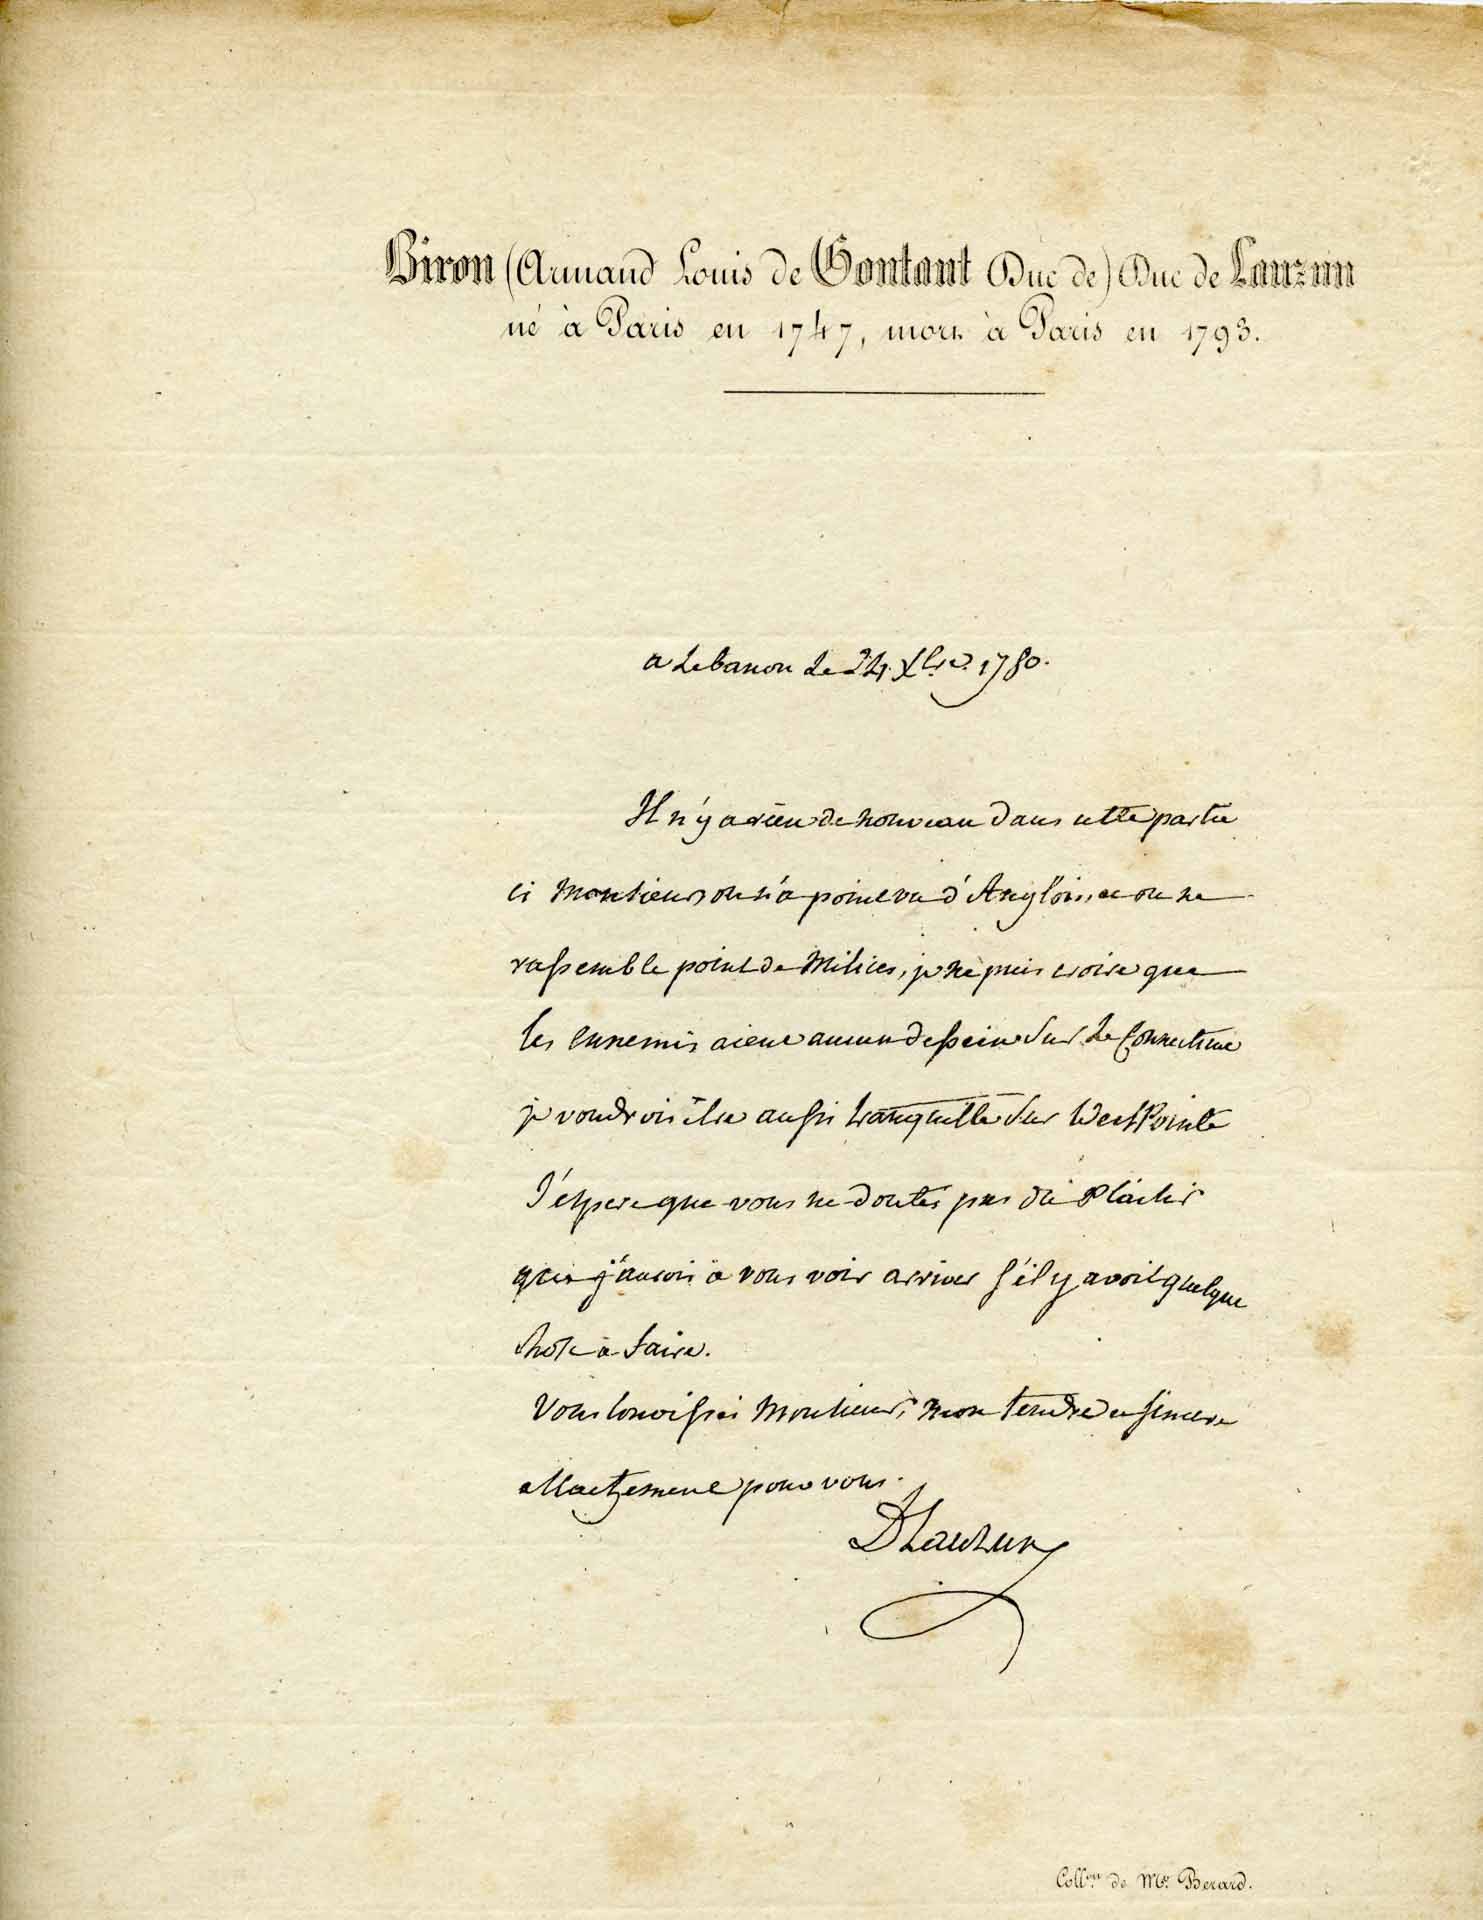 Biron (Armand Louis de Gontaut Duc de) Duc de Lauzun
né à Paris en 1747, mort à Paris en 1793.
a Lebanon Le 24. Xbre. 1780.
Il n'y a rien de nouveau dans cette partie
ci Monsieur, on n'a point vu d'Anglois, et on ne
rassemble point de Milices, je ne puis croire que
les ennemis aient aucun dessein sur Le Connecticut
je voudrois être aussi tranquille sur West Pointe
J'espere que vous ne doutés pas du Plaisir
que j'aurois à vous voir arriver s'il y avoit quelque
chose à faire.
Vous conoissés Monsieur, mon tendre et sincere
attachement pour vous.
D Lauzun
Coll.on de Mr. Berard.